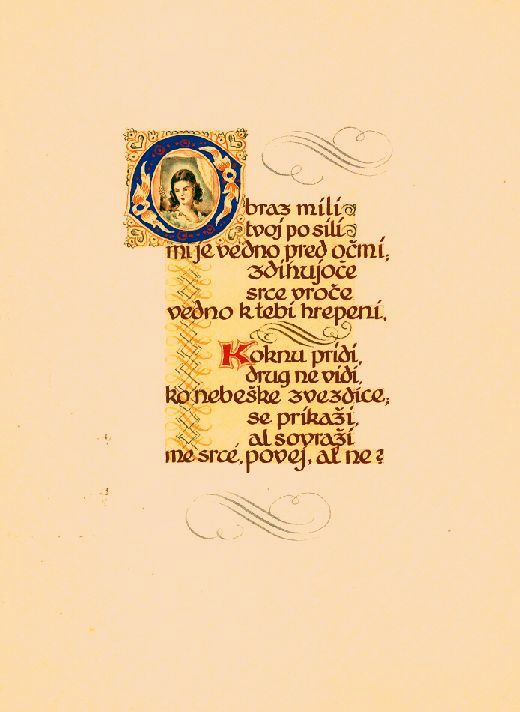 Obraz mili
tvoj po sili
mi je vedno pred očmi;
zdihujoče
srce vroče
vedno k tebi hrepeni.
K oknu pridi,
drug ne vidi,
ko nebeške zvezdice;
se prikaži,
al sovraži
me srce, povej, al ne?